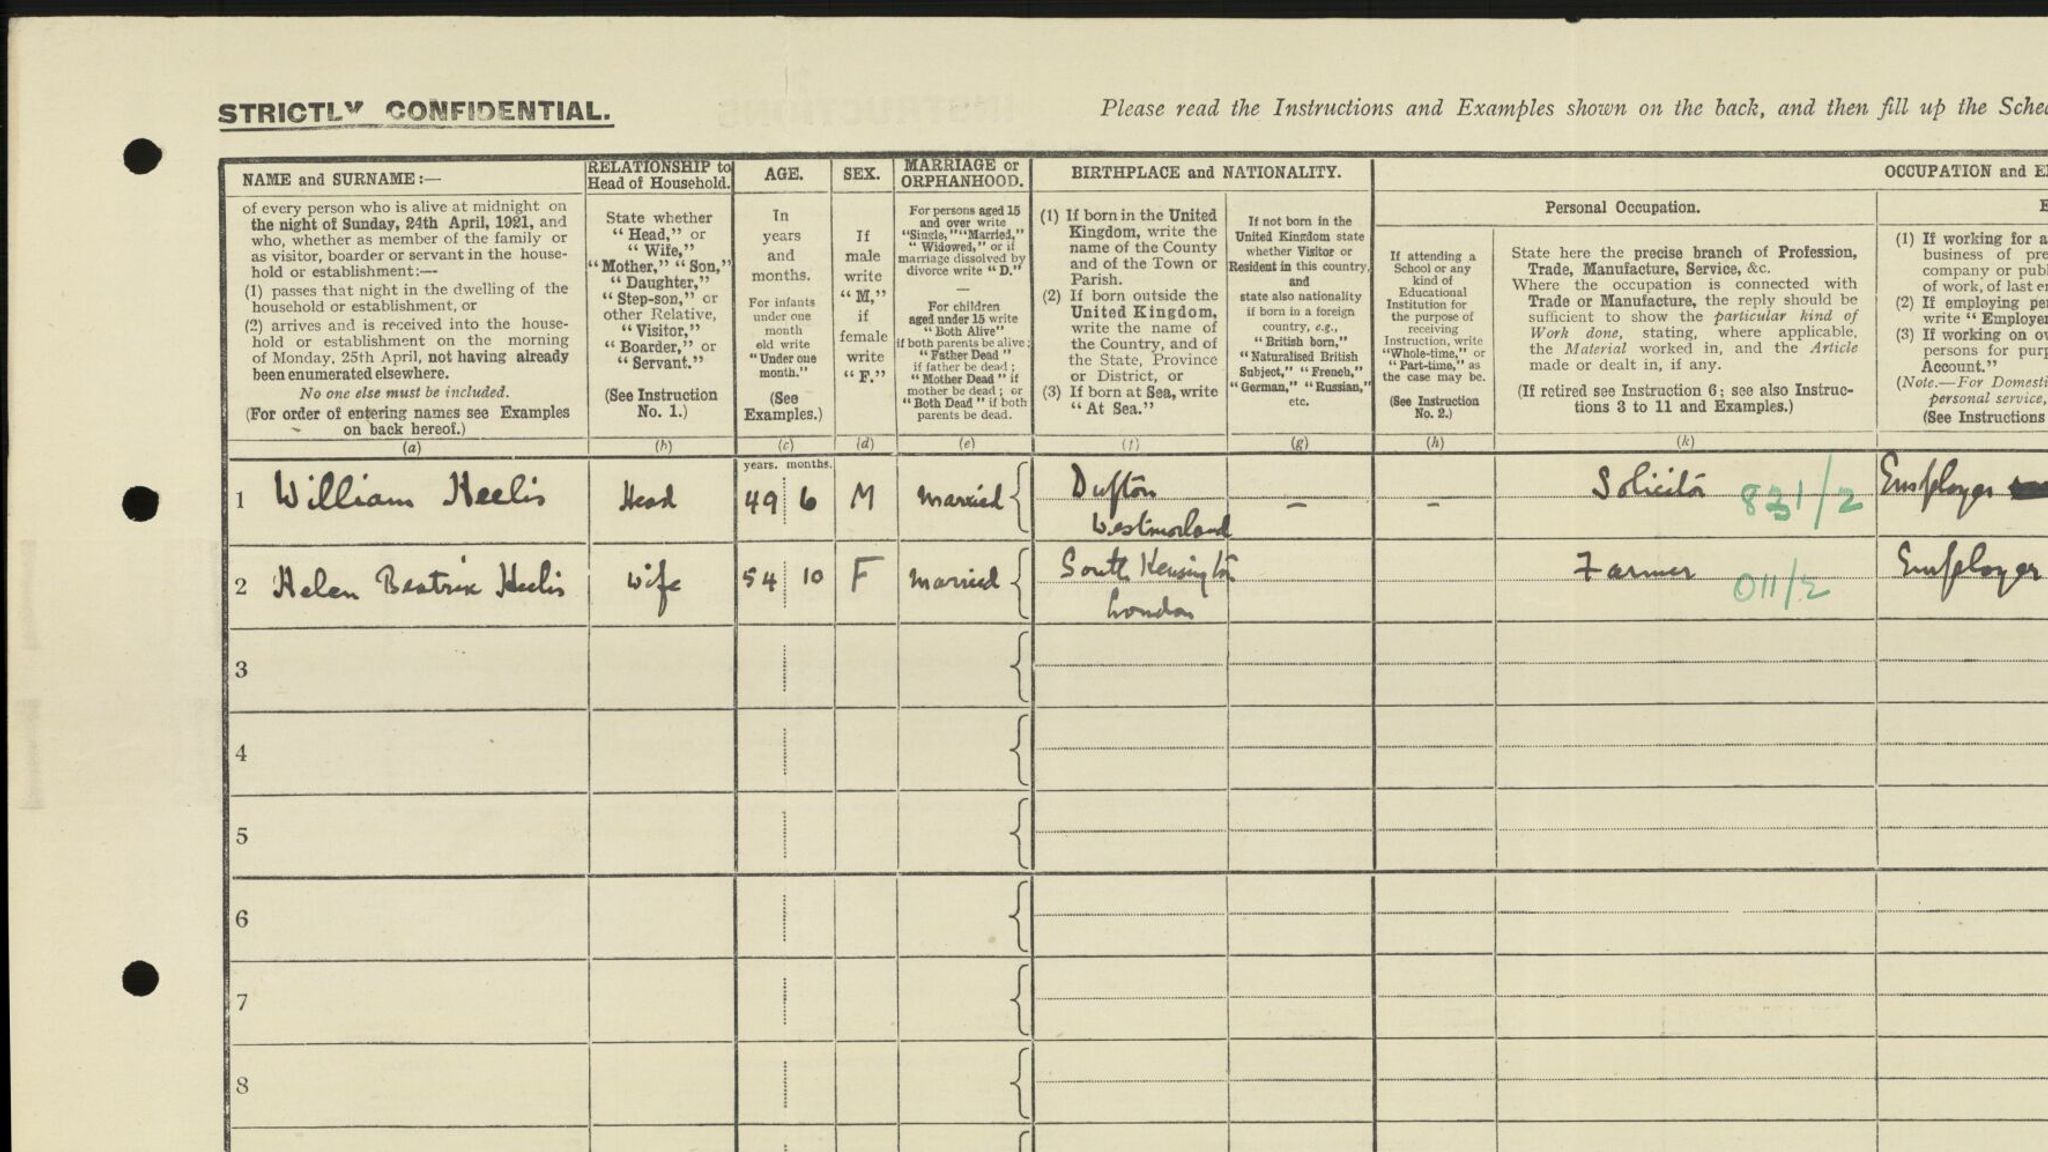 STRICTLY CONFIDENTIAL.
Please read the Instructions and Examples shown on the back, and then fill up the Sche
NAME and SURNAME:—
of every person who is alive at midnight on
the night of Sunday, 24th April, 1921, and
who, whether as member of the family or
as visitor, boarder or servant in the house-
hold or establishment:—
(1) passes that night in the dwelling of the
household or establishment, or
(2) arrives and is received into the house-
hold or establishment on the morning
of Monday, 25th April, not having already
been enumerated elsewhere.
No one else must be included.
(For order of entering names see Examples
on back hereof.)
(a)
RELATIONSHIP to
Head of Household.
State whether
"Head," or
"Wife,"
"Mother," "Son,"
"Daughter,"
"Step-son," or
other Relative,
"Visitor,"
"Boarder," or
"Servant."
(See Instruction
No. 1.)
(b)
AGE.
In
years
and
months.
For infants
under one
month
old write
"Under one
month."
(See
Examples.)
(c)
SEX.
If
male
write
"M,"
if
female
write
"F."
(d)
MARRIAGE or
ORPHANHOOD.
For persons aged 15
and over write
"Single," "Married,"
"Widowed," or if
marriage dissolved by
divorce write "D."
—
For children
aged under 15 write
"Both Alive"
if both parents be alive;
"Father Dead"
if father be dead;
"Mother Dead" if
mother be dead; or
"Both Dead" if both
parents be dead.
(e)
BIRTHPLACE and NATIONALITY.
(1) If born in the United
Kingdom, write the
name of the County
and of the Town or
Parish.
(2) If born outside the
United Kingdom,
write the name of
the Country, and of
the State, Province
or District, or
(3) If born at Sea, write
"At Sea."
(f)
If not born in the
United Kingdom state
whether Visitor or
Resident in this country,
and
state also nationality
if born in a foreign
country, e.g.,
"British born,"
"Naturalised British
Subject," "French,"
"German," "Russian,"
etc.
(g)
OCCUPATION and E
Personal Occupation.
If attending a
School or any
kind of
Educational
Institution for
the purpose of
receiving
Instruction, write
"Whole-time," or
"Part-time," as
the case may be.
(See Instruction
No. 2.)
(h)
State here the precise branch of Profession,
Trade, Manufacture, Service, &c.
Where the occupation is connected with
Trade or Manufacture, the reply should be
sufficient to show the particular kind of
Work done, stating, where applicable,
the Material worked in, and the Article
made or dealt in, if any.
(If retired see Instruction 6; see also Instruc-
tions 3 to 11 and Examples.)
(k)
E
(1) If working for a
business of pre
company or publ
of work, of last e
(2) If employing pe
write "Employer
(3) If working on ow
persons for purp
Account."
(Note.—For Domesti
personal service,
(See Instructions
years. months.
1 William Heelis Head 49 6 M Married Dufton Westmorland – – Solicitor 831/2 Employer
2 Helen Beatrix Heelis Wife 54 10 F Married South Kensington London Farmer 011/2 Employer
3
4
5
6
7
8